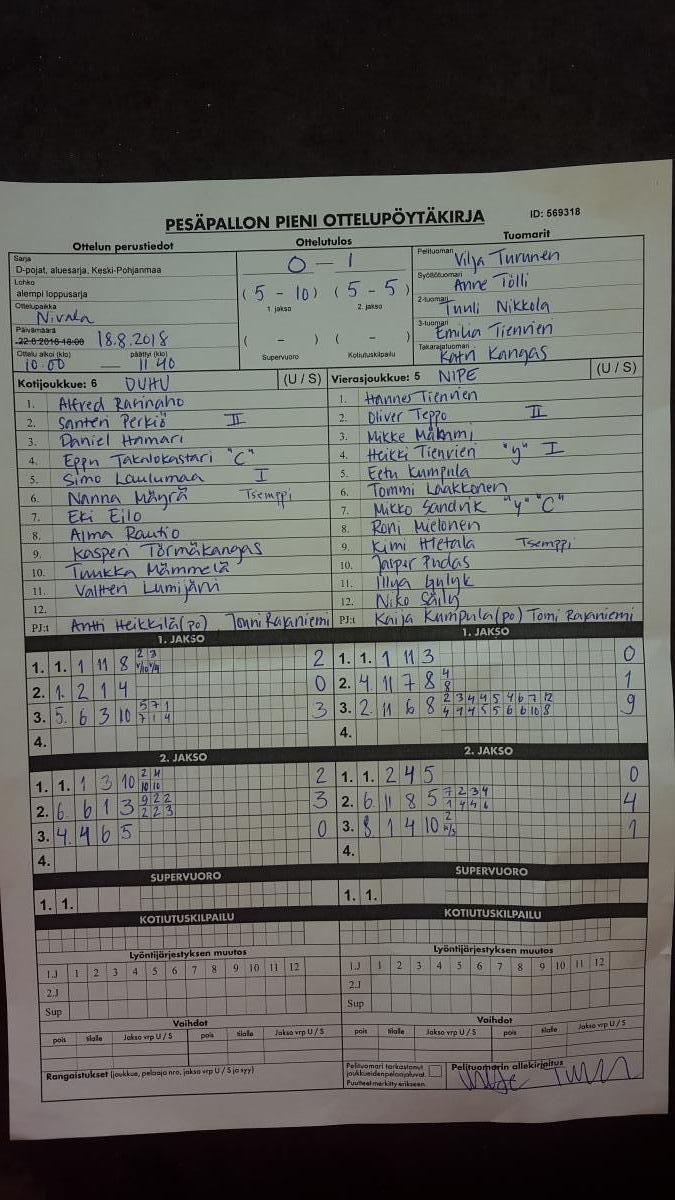 PESÄPALLON PIENI OTTELUPÖYTÄKIRJA
ID: 569318
Ottelun perustiedot
Sarja
D-pojat, aluesarja, Keski-Pohjanmaa
Lohko
alempi loppusarja
Ottelupaikka
Nivala
Päivämäärä
22.8.2018 18:00 18.8.2018
Ottelu alkoi (klo) päättyi (klo)
10.00 — 11.40
Ottelutulos
0 – 1
(5 - 10) (5 - 5)
1. jakso 2. jakso
( - ) ( - )
Supervuoro Kotiutuskilpailu
Tuomarit
Pelituomari Vilja Turunen
Syöttötuomari Anne Tölli
2-tuomari Tuuli Nikkola
3-tuomari Emilia Tienvieri
Takarajatuomari Katri Kangas
Kotijoukkue: 6 DUHU (U / S)
1. Alfred Rarinaho
2. Santeri Perkiö II
3. Daniel Hamari
4. Eppu Takalokastari "C"
5. Simo Laulumaa I
6. Nanna Mäyrä Tsemppi
7. Eki Eilo
8. Alma Rautio
9. Kasperi Törmäkangas
10. Tuukka Mämmelä
11. Valtteri Lumijärvi
12.
PJ:t Antti Heikkilä (po) Jonni Rajaniemi
Vierasjoukkue: 5 NIPE (U / S)
1. Hannes Tienvieri
2. Oliver Teppo II
3. Mikke
4. Heikki Tienvieri "y" I
5. Eetu Kumpula
6. Tommi Laakkonen
7. Mikko Sandvik "y" "C"
8. Roni Mielonen
9. Kimi Hietala Tsemppi
10. Jasper Pudas
11. Illya
12. Niko Säily
PJ:t Kaija Kumpula (po) Tomi Rajaniemi
1. JAKSO
1. 1. 1 11 8 2 3 2
2. 1. 2 1 4 0
3. 5. 6 3 10 5 7 1 3
7 1 4
4.
1. JAKSO
1. 1. 1 11 3 0
2. 4. 11 7 8 4 1
8
3. 2. 11 6 8 2 3 4 4 5 4 6 7 12 9
4 4 4 5 5 6 6 10 8
4.
2. JAKSO
1. 1. 1 3 10 2 4 2
10 10
2. 6. 6 1 3 9 2 2 3
2 2 3
3. 4. 4 6 5 0
4.
2. JAKSO
1. 1. 2 4 5 0
2. 6. 11 8 5 7 2 3 4 4
1 4 4 6
3. 8. 1 4 10 2 1
4.
SUPERVUORO
1. 1.
SUPERVUORO
1. 1.
KOTIUTUSKILPAILU
KOTIUTUSKILPAILU
Lyöntijärjestyksen muutos
1.J 1 2 3 4 5 6 7 8 9 10 11 12
2.J
Sup
Lyöntijärjestyksen muutos
1.J 1 2 3 4 5 6 7 8 9 10 11 12
2.J
Sup
Vaihdot
pois tilalle Jakso vrp U / S pois tilalle Jakso vrp U / S
Vaihdot
pois tilalle Jakso vrp U / S pois tilalle Jakso vrp U / S
Rangaistukset (joukkue, pelaaja nro, jakso vrp U / S ja syy)
Pelituomari tarkastanut
joukkueiden pelaajaluvat.
Puutteet merkitty erikseen.
Pelituomarin allekirjoitus